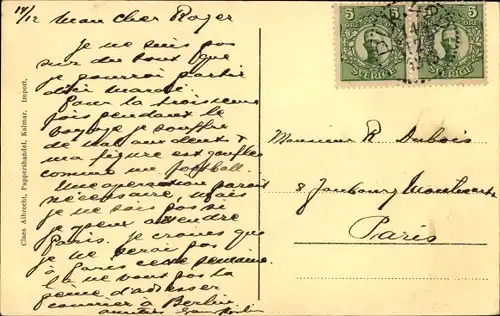 14/12 Mon cher Roger
Je ne suis pas
sur du tout que
je pourrai partir
d'ici mardi
Pour la troisieme
fois pendant le
voyage je souffre
de mal aux dents &
ma figure est gonflee
comme un football.
Une operation parait
necessaire, mais
je ne sais pas si
je peux attendre
Paris. Je crains que
je ne serai pas
à Paris cette semaine.
Ce ne vaut pas la
peine d'adresser
courrier à Berlin
amities
Claes Albrecht, Pappershandel, Kalmar. Import.
5 5
SVERIGE SVERIGE
Monsieur R Dubois
8 Faubourg Montmartre
Paris